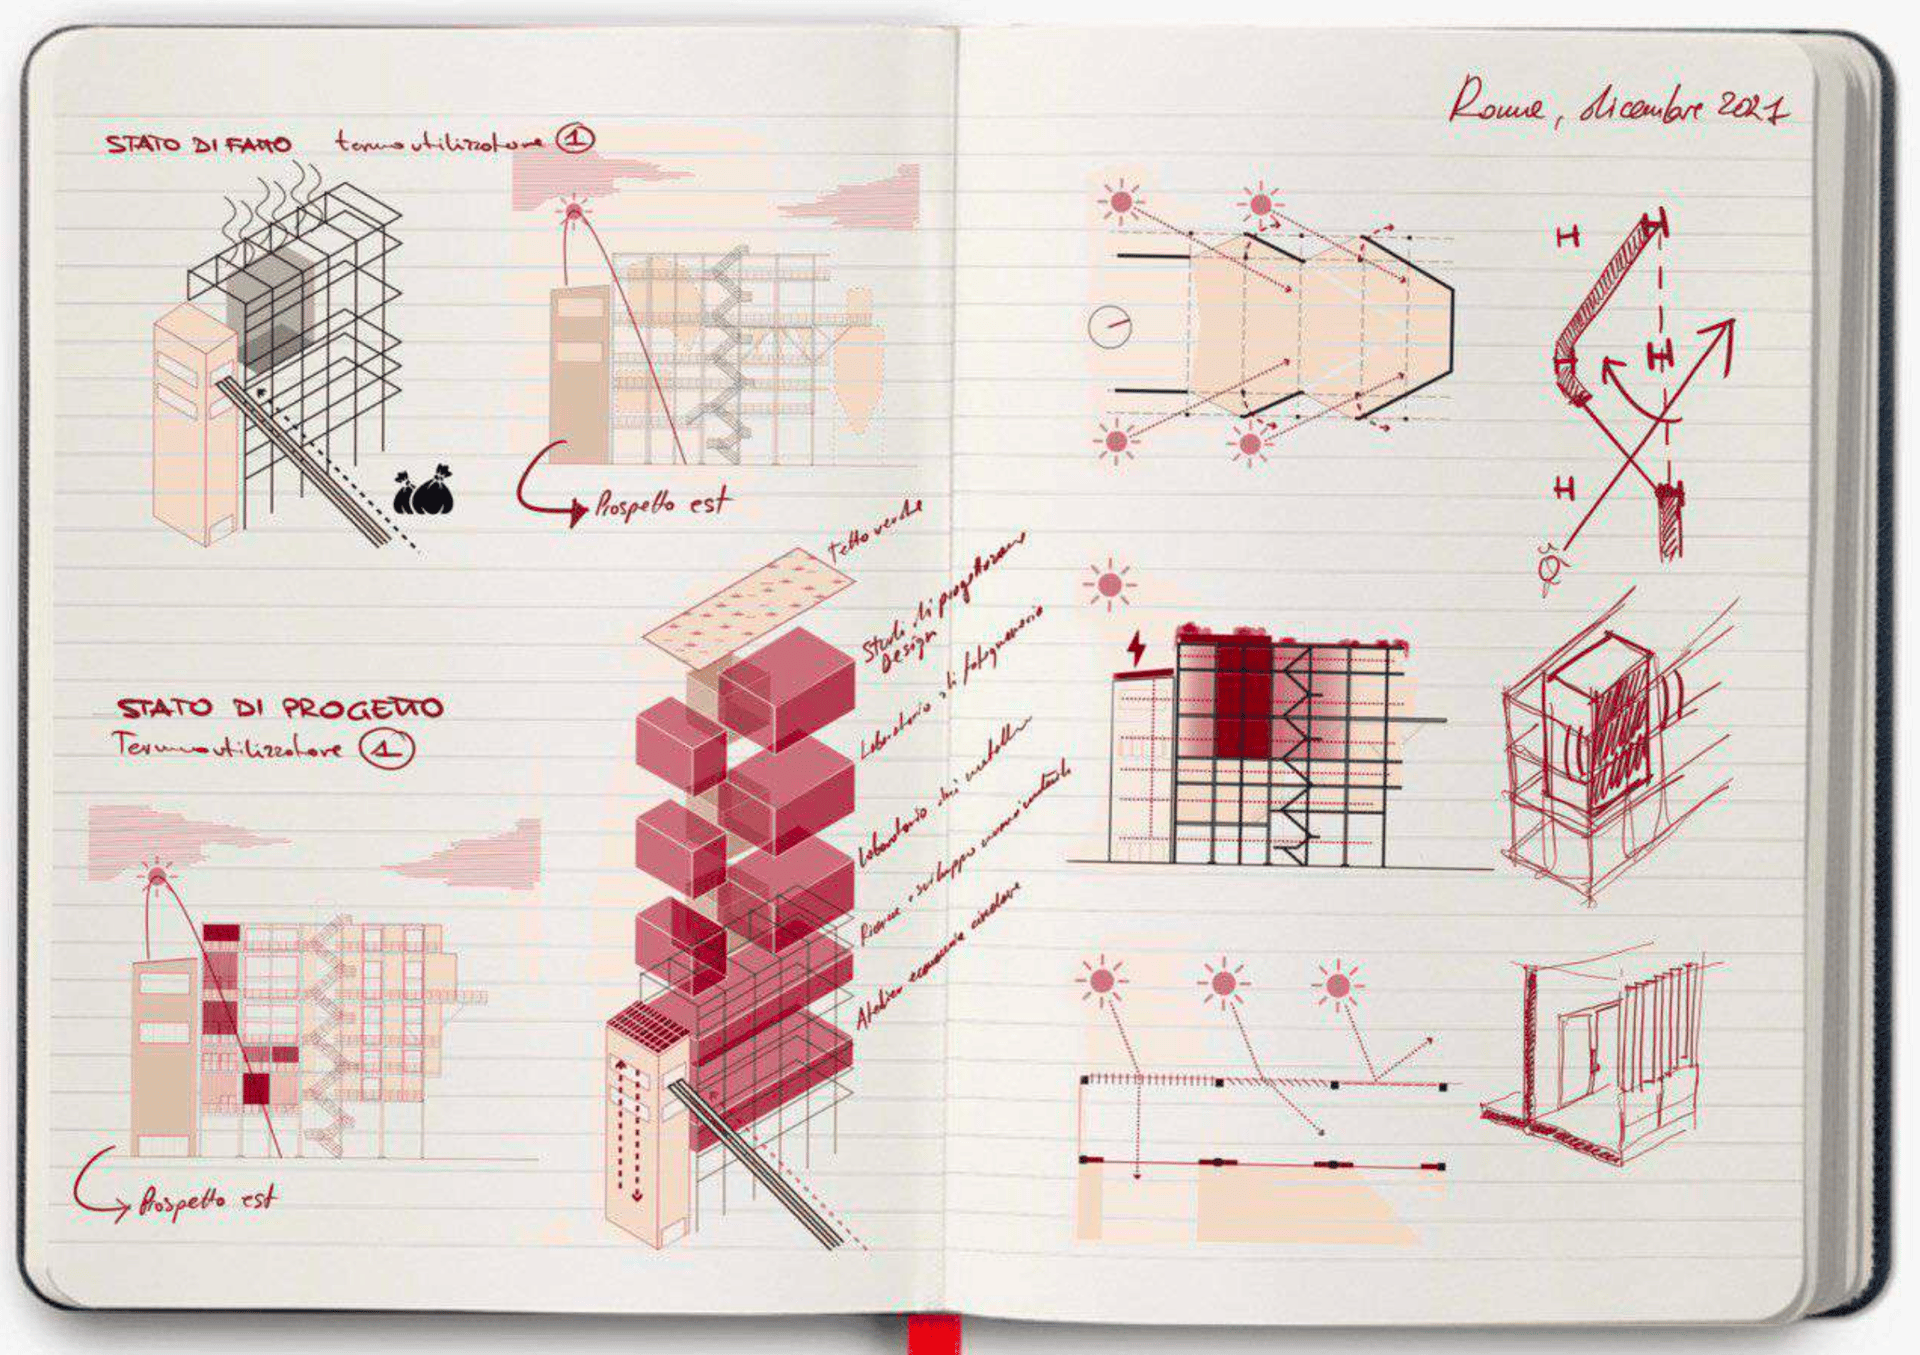 STATO DI FATTO termoutilizzatore 1
Prospetto est
STATO DI PROGETTO
Termoutilizzatore 1
Prospetto est
tetto verde
Studi di progettazione
Design
Laboratorio di falegnameria
Laboratorio dei metalli
Ricerca e sviluppo nuovi materiali
Atelier economia circolare
Roma, dicembre 2021